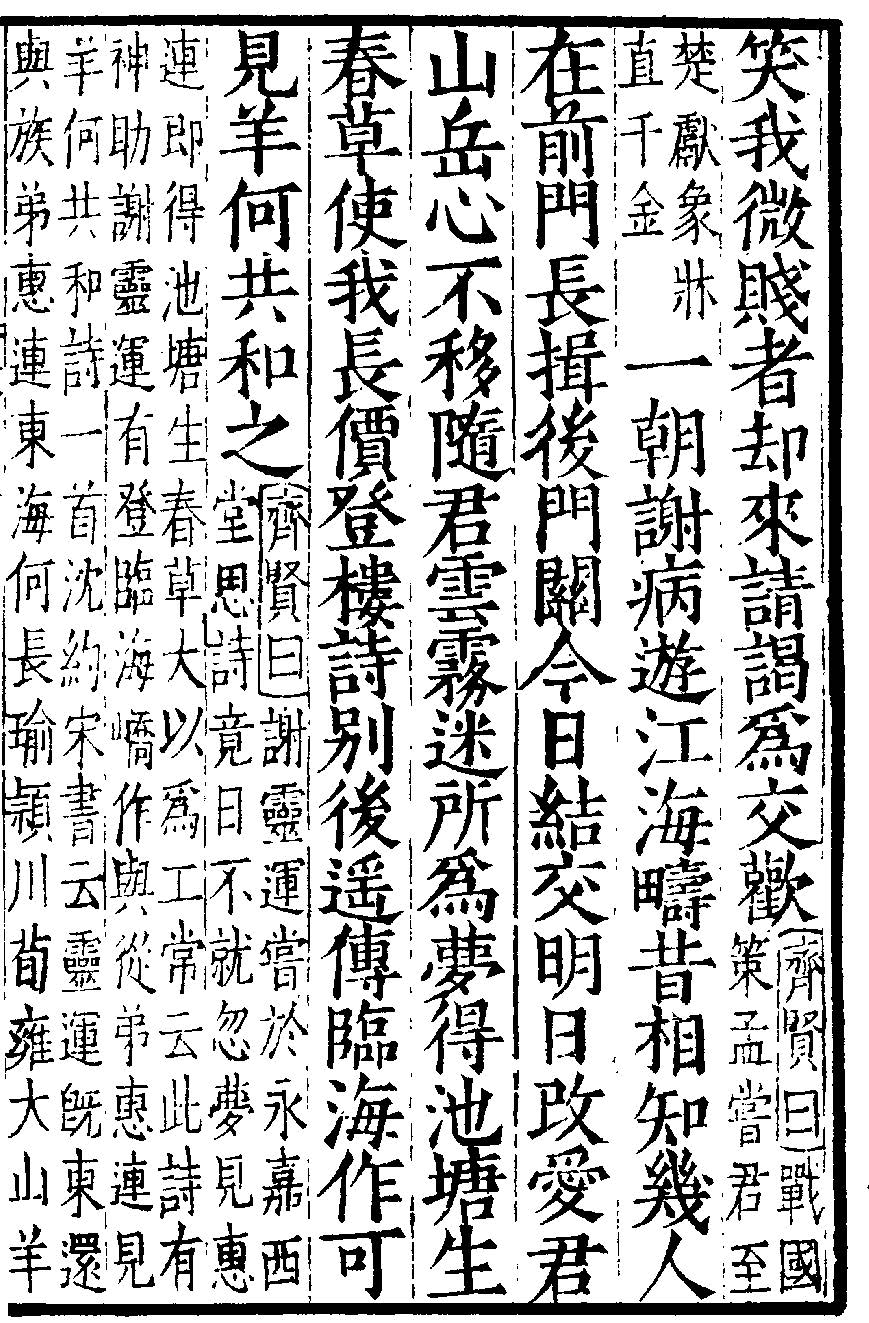 笑我微賤者却來請謁爲交歡齊賢曰戰國
策孟嘗君至
楚獻象牀
直千金
一朝謝病遊江海疇昔相知幾人
在前門長揖後門關今日結交明日改愛君
山岳心不移隨君雲霧迷所爲夢得池塘生
春草使我長價登樓詩别後遥傳臨海作可
見羊何共和之齊賢曰謝靈運嘗於永嘉西
堂思詩竟日不就忽夢見惠
連即得池塘生春草大以爲工常云此詩有
神助謝靈運有登臨海嶠作與從弟惠連見
羊何共和詩一首沈約宋書云靈運旣東還
與族弟惠連東海何長瑜頴川荀雍大山羊